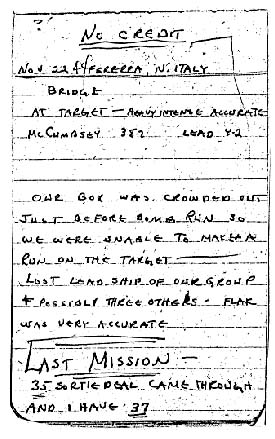 NO CREDIT
NOV 22 44 FERERRA, N. ITALY
BRIDGE
AT TARGET — HEAVY INTENSE ACCURATE
McCUMBSEY 382 LEAD Y-2
OUR BOX WAS CROWDED OUT
JUST BEFORE BOMB RUN SO
WE WERE UNABLE TO MAKE A
RUN ON THE TARGET —
LOST LEAD SHIP OF OUR GROUP
+ POSSIBLY THREE OTHERS - FLAK
WAS VERY ACCURATE
LAST MISSION —
35 SORTIE DEAL CAME THROUGH
AND I HAVE 37